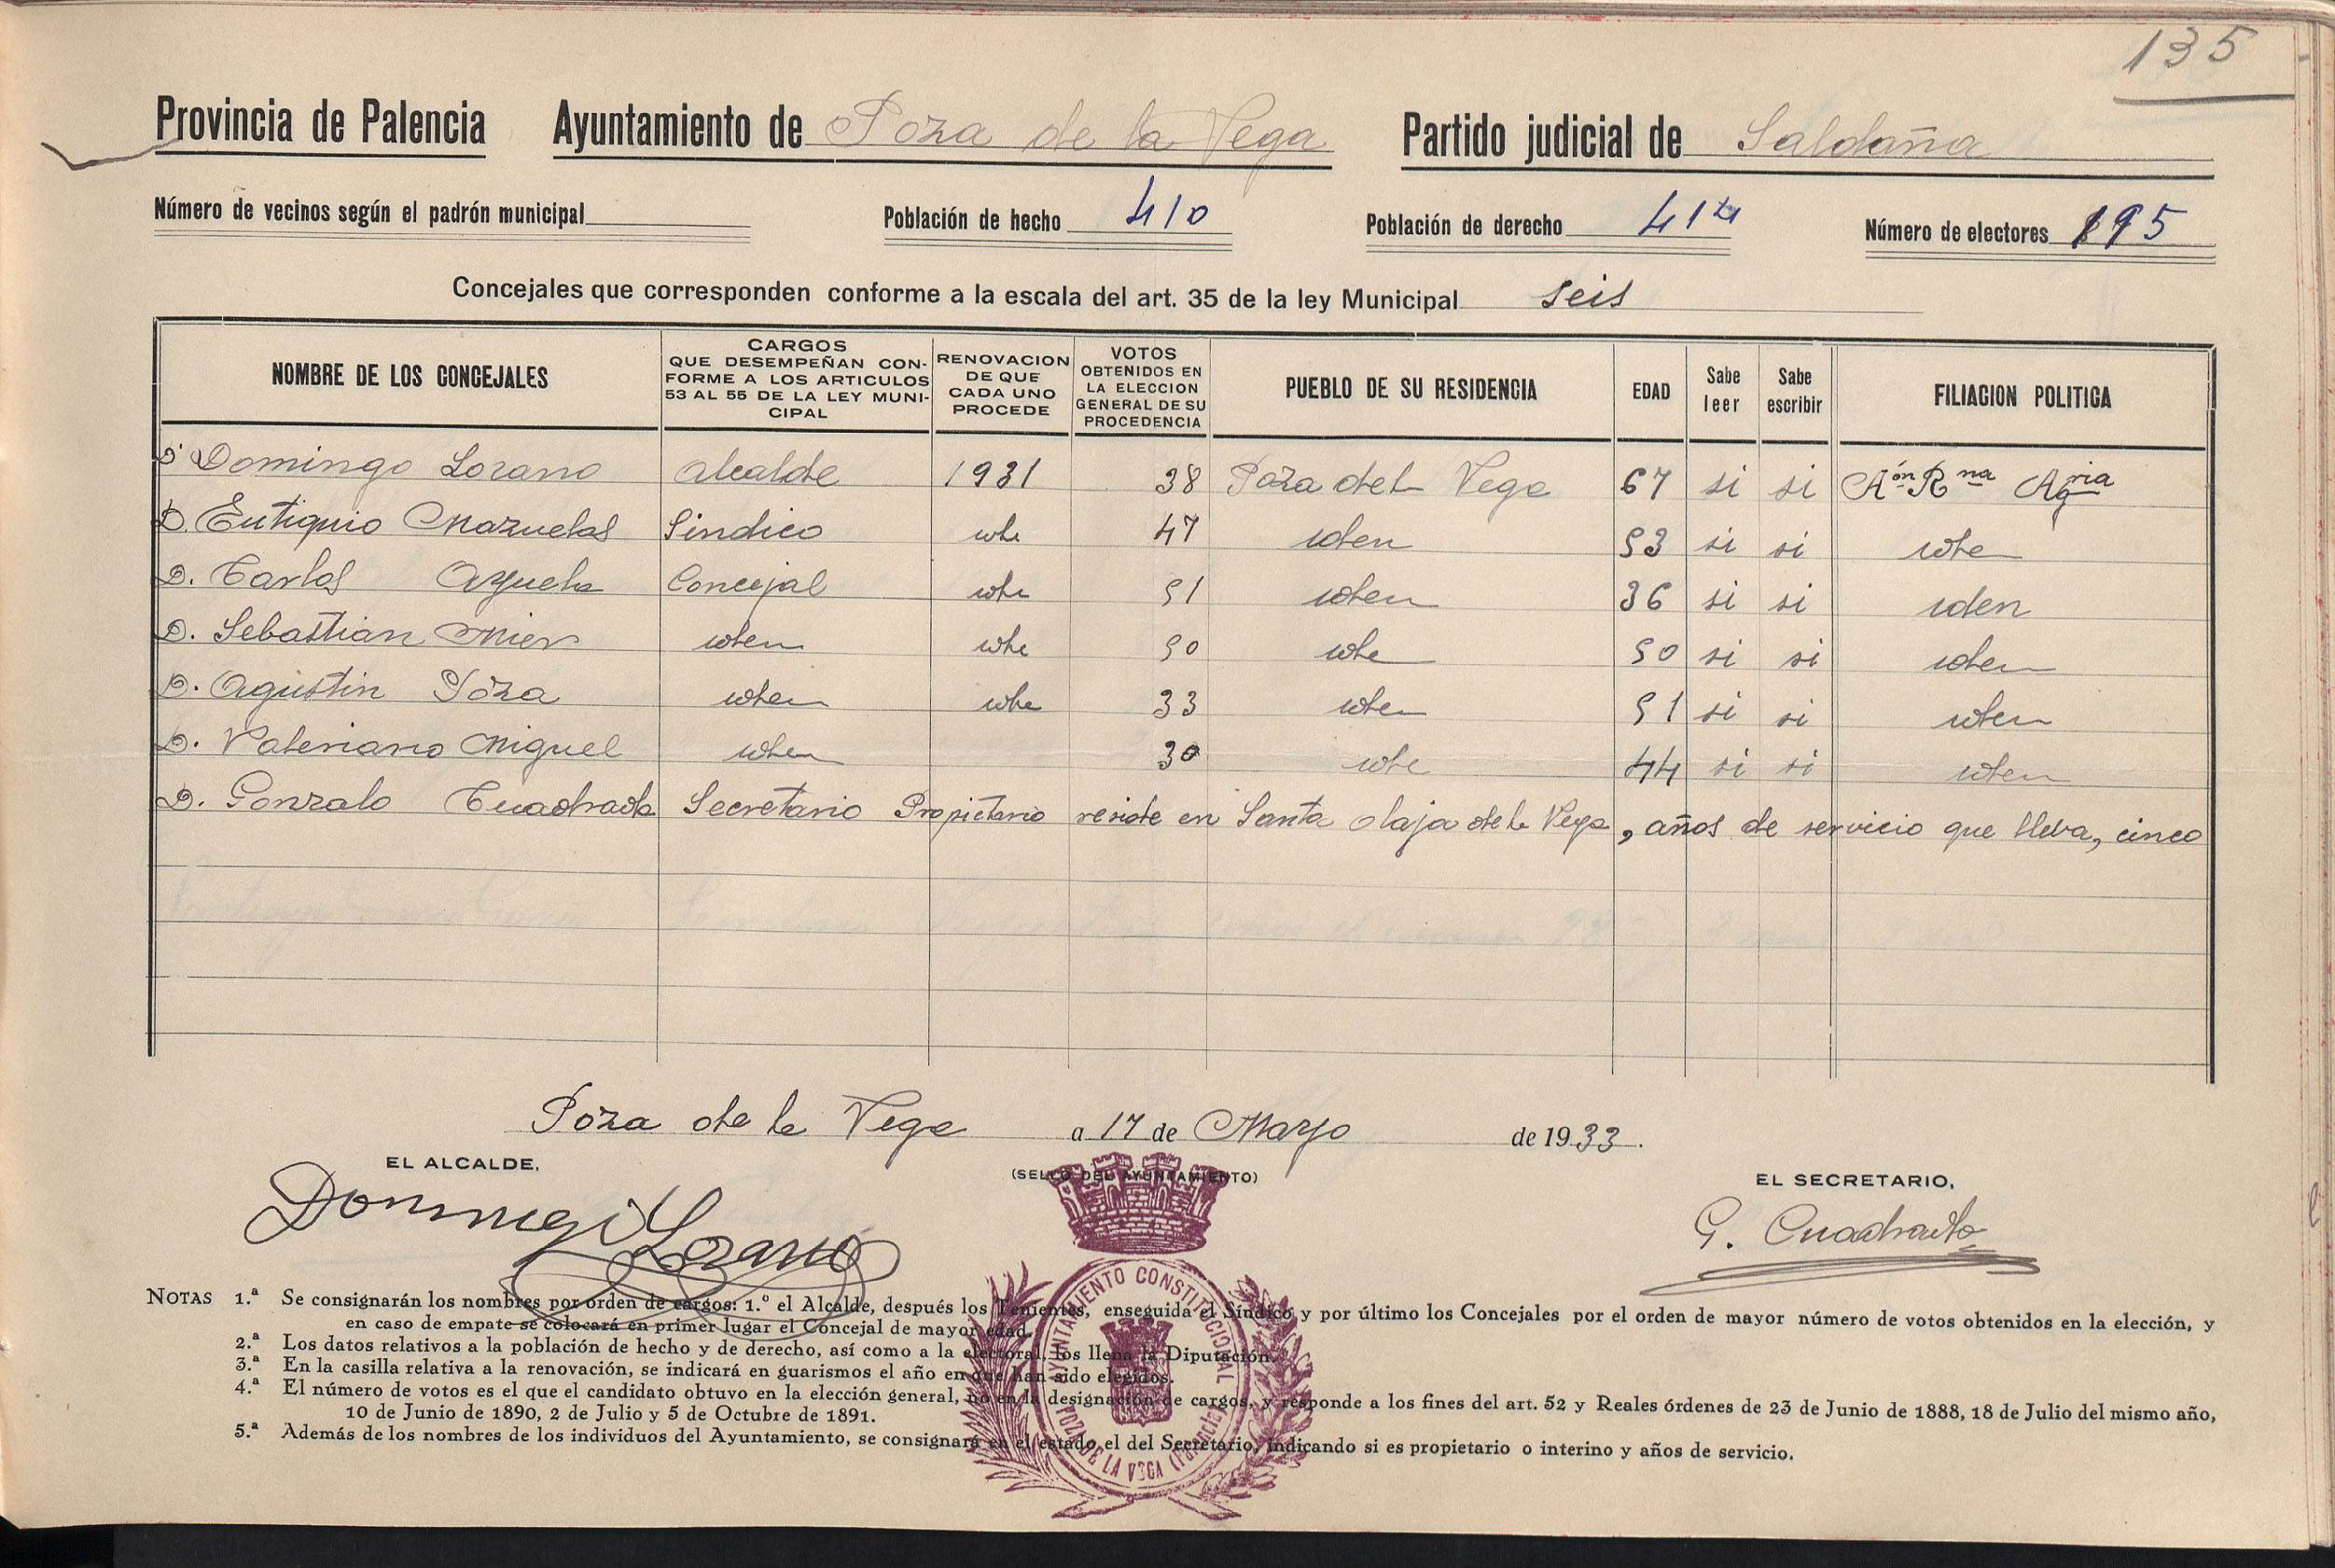 135
Provincia de Palencia Ayuntamiento de Poza de la Vega Partido judicial de Saldaña
Número de vecinos según el padrón municipal Población de hecho 410 Población de derecho 414 Número de electores 195
Concejales que corresponden conforme a la escala del art. 35 de la ley Municipal seis
NOMBRE DE LOS CONCEJALES CARGOS QUE DESEMPEÑAN CONFORME A LOS ARTICULOS 53 AL 55 DE LA LEY MUNICIPAL RENOVACION DE QUE CADA UNO PROCEDE VOTOS OBTENIDOS EN LA ELECCION GENERAL DE SU PROCEDENCIA PUEBLO DE SU RESIDENCIA EDAD Sabe leer Sabe escribir FILIACION POLITICA
D. Domingo Lozano Alcalde 1931 38 Poza de la Vega 67 si si Aón Rna Agria
D. Eutiquio Mazuelas Sindico idem 47 idem 53 si si idem
D. Carlos Ayuela Concejal idem 51 idem 36 si si idem
D. Sebastian Mier idem idem 50 idem 50 si si idem
D. Agustin Poza idem idem 33 idem 51 si si idem
D. Valeriano Miguel idem 30 idem 44 si si idem
D. Gonzalo Cuadrado Secretario Propietario reside en Santa Olaja de la Vega, años de servicio que lleva, cinco
Poza de la Vega a 17 de Marzo de 1933.
EL ALCALDE, (SELLO DEL AYUNTAMIENTO) EL SECRETARIO,
Domingo Lozano G. Cuadrado
AYUNTAMIENTO CONSTITUCIONAL
POZA DE LA VEGA (Palencia)
NOTAS 1.ª Se consignarán los nombres por orden de cargos: 1.º el Alcalde, después los Tenientes, enseguida el Síndico y por último los Concejales por el orden de mayor número de votos obtenidos en la elección, y
en caso de empate se colocará en primer lugar el Concejal de mayor edad.
2.ª Los datos relativos a la población de hecho y de derecho, así como a la electoral, los llena la Diputación.
3.ª En la casilla relativa a la renovación, se indicará en guarismos el año en que han sido elegidos.
4.ª El número de votos es el que el candidato obtuvo en la elección general, no en la designación de cargos, y responde a los fines del art. 52 y Reales órdenes de 23 de Junio de 1888, 18 de Julio del mismo año,
10 de Junio de 1890, 2 de Julio y 5 de Octubre de 1891.
5.ª Además de los nombres de los individuos del Ayuntamiento, se consignará en el estado el del Secretario, indicando si es propietario o interino y años de servicio.